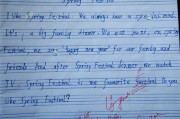 Spring Festival
I like Spring Festival. We always have a
It's a big family dinner. We eat
Festival, we say "happy new year" for our family and
friends. And after Spring Festival dinner we watch
TV. Spring Festival is my favourite festival. Do you
like Spring Festival?